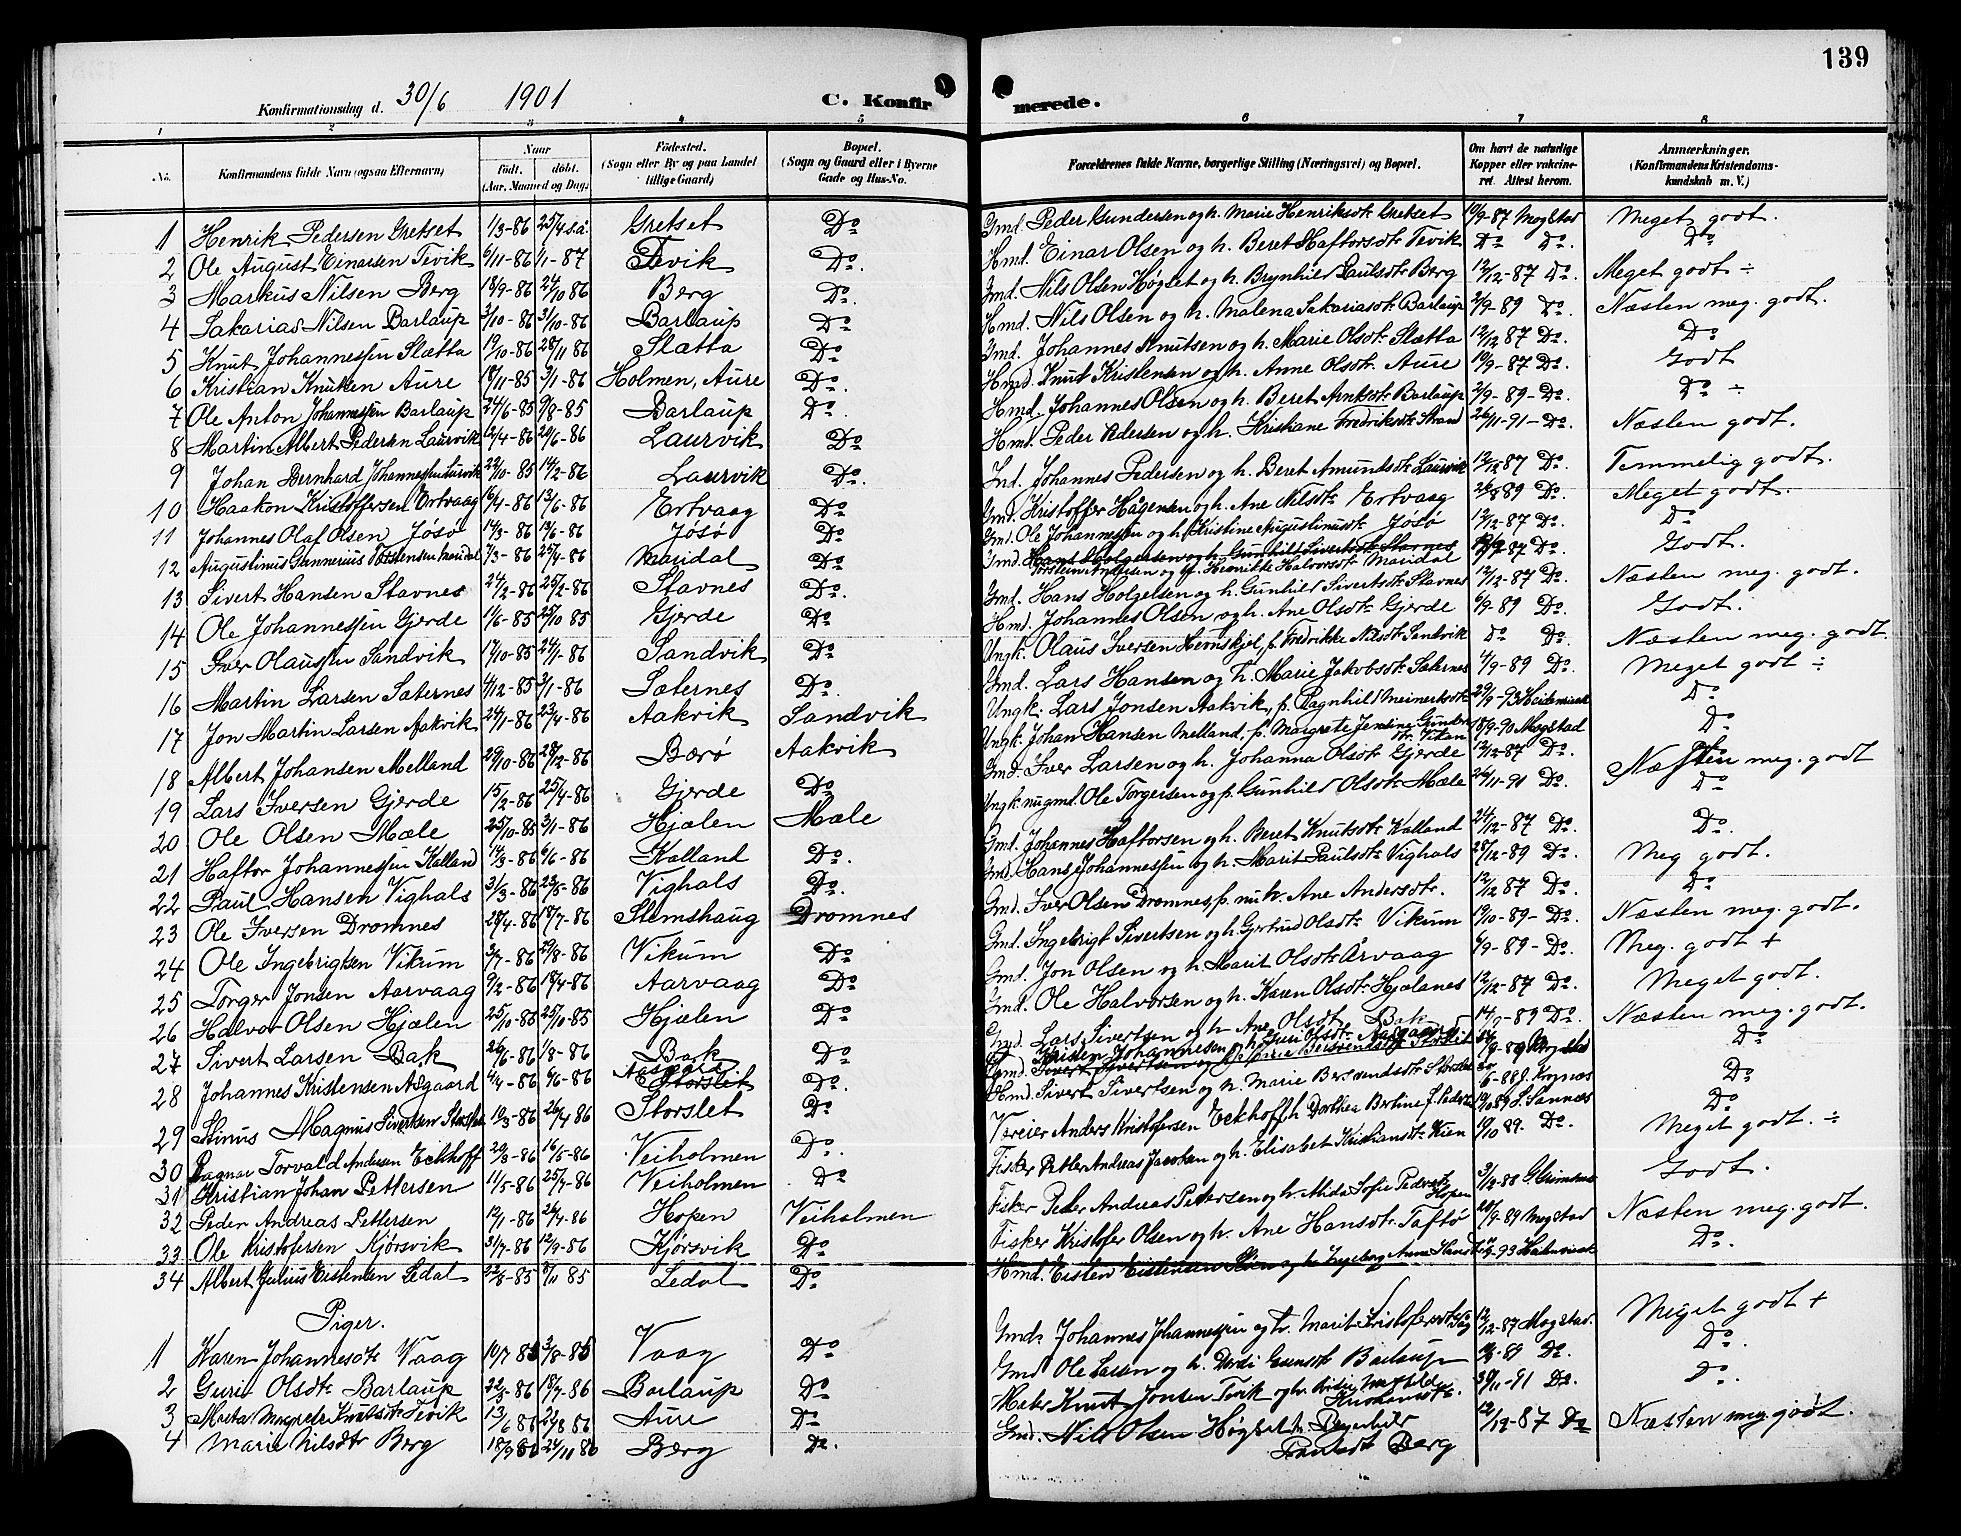 139
Konfirmationsdag d. 30/6 1901
C. Konfirmerede.
1 2 3 4 5 6 7 8
No. Konfirmandens fulde Navn (ogsaa Efternavn) Naar født, døbt. (Aar, Maaned og Dag) Fødested. (Sogn eller By og paa Landet tillige Gaard) Bopæl. (Sogn og Gaard eller i Byerne Gade og Hus-No. Forældrenes fulde Navne, borgerlige Stilling (Næringsvei) og Bopæl. Om havt de naturlige Kopper eller vakcineret. Attest herom. Anmærkninger, (Konfirmandens Kristendomskundskab m. V.)
1 Henrik Pedersen Gretset 1/3-86 25/4 s.a. Gretset Do Gmd. Peder Gundersen og h. Marie Henriksdt. Gretset 19/9-87 Mogstad Meget godt.
2 Ole August Einarsen Tevik 6/11-86 1/1-87 Tevik Do. Hmd. Einar Olsen og h. Beret Haftorsdt. Tevik Do Do. Do
3 Markus Nilsen Berg 18/9-86 24/10 86 Berg Do. Gmd. Nils Olsen Høgset og h. Brynhild Paulsdt. Berg 12/12-87 Do. Meget godt ÷
4 Sakarias Nilsen Barlaup 3/10-86 31/10-86 Barlaup Do. Hmd. Nils Olsen og h. Malena Sakariasdt. Barlaup 2/9-89 Do. Næsten meg. godt.
5 Knut Johannessen Slætta 19/10-86 28/11 86 Slætta Do. Gmd. Johannes Knutsen og h. Marie Olsdt. Slætta 12/12 87 Do. Do
6 Kristian Knutsen Aure 18/11-85 3/1-86 Holmen, Aure Do. Hmd. Knut Kristensen og h. Anne Olsdt. Aure 19/9-87 Do. Godt
7 Ole Anton Johannessen Barlaup 24/6-85 9/8-85 Barlaup Do. Hmd. Johannes Olsen og h. Beret Barlaup 2/9-89- Do. Do ÷
8 Martin Albert Pedersen Laurvik 12/4-86 20/6-86 Laurvik Do Hmd. Peder Pedersen og h. Kristiane Fredriksdt. Strand 26/11-91- Do. Næsten godt.
9 Johan Bernhard Johannessen Laurvik 22/10-85 14/2-86 Laurvik Do. Ind. Johannes Pedersen og h. Beret Amundsdt. Laurvik 12/12 87 Do. Temmelig godt.
10 Haakon Kristoffersen Ertvaag 16/4-86 13/6-86 Ertvaag Do Gmd. Kristoffer Hågensen og h. Ane Nilsdt. Ertvaag 26/8 89 Do. Meget godt.
11 Johannes Olaf Olsen Jøsø 14/3-86 13/6-86 Jøsø Do Gmd. Ole Johannessen og h. Kristine Augustinusdt. Jøsø 12/12-87 Do. Do
12 Augustinus Gunnerius Torstensen Maudal 7/3-86 25/4-86 Maudal Do Gmd. Hans Holgersen og h. Gunhild Sivertsdt. Stavnes 87 Do. Godt.
Torstein og h. Henrikke Halvorsdt. Maudal
13 Sivert Hansen Stavnes 24/2-86 25/2-86 Stavnes Do Gmd. Hans Holgelsen og h. Gunhild Sivertsdt. Stavnes 12/12-87 Do. Næsten meg. godt.
14 Ole Johannessen Gjerde 1/6-85 25/10 85 Gjerde Do Hmd. Johannes Olsen og h. Ane Olsdt. Gjerde 6/9-89 Do. Godt.
15 Iver Olaussen Sandvik 17/10-85 24/1-86 Sandvik Do Ungk. Olaus Iversen Hemskjel, p. Fredrikke Nilsdt. Sandvik Do Do. Næsten meg. godt
16 Martin Larsen Sæternes 4/12-85 3/1-86 Sæternes Do. Gmd. Lars Hansen og h. Marie Jakobsdt. Sæternes 4/9-89 Do. Meget godt ÷
17 Jon Martin Larsen Aakvik 24/1-86 23/4-86 Aakvik Sandvik Ungk. Lars Jonsen Aakvik, p. Ragnhild Meinertsdt. 29/9-93 Do
18 Albert Johansen Melland 29/10-86 28/12-86 Bærø Aakvik Ungk. Johan Hansen Melland, p. Margrete Jensine Gunders 8/9-90 Mogstad Do
19 Lars Iversen Gjerde 15/2-86 25/4-86 Gjerde Do Gmd. Iver Larsen og h. Johanna Olsdt. Gjerde 12/12-87 Do. Næsten meg. godt
20 Ole Olsen Mæle 25/10-85 3/1-86 Hjælen Mæle Ungk. nu gmd. Ole Torgersen og p. Gunhild Olsdt. Mæle 26/11-91 Do. Do
21 Haftor Johannessen Kalland 14/3-86 6/6-86 Kalland Do. Gmd. Johannes Haftorsen og h. Beret Knutsdt. Kalland 24/12-87 Do. Do.
22 Paul Hansen Vighals 3/3-86 23/5-86 Vighals Do. Gmd. Hans Johannessen og h. Marit Paulsdt. Vighals 28/12-89 Do. Meg godt.
23 Ole Iversen Dromnes 28/4-86 18/7-86 Stemshaug Dromnes Gmd. Iver Olsen Dromnes, p. nu h. Ane Andersdt. 12/12 87 Do. Do
24 Ole Ingebrigtsen Vikum 3/7-86 29/8-86 Vikum Do Gmd. Ingebrigt Sivertsen og h. Gjertrud Olsdt. Vikum 19/10-89- Do. Næsten meg. godt.
25 Torger Jonsen Aarvaag 9/2-86 18/4-86 Aarvaag Do Gmd. Jon Olsen og h. Marit Olsdt. Årvaag 6/9-89- Do. Meg. godt +
26 Halvor Olsen Hjælen 25/10-86 25/10-85 Hjælen Do Gmd. Ole Halvorsen og h. Karen Olsdt. Hjælanes 12/12-87 Do. Meget godt.
27 Sivert Larsen Bak 26/6-86 1/8-86 Bak Do Gmd. Lars Sivertsen og h. Ane Olsdt. Bak 89 Do. Næsten meg. godt.
28 Johannes Kristensen Asgaard 4/4-86 6/6-86 Aasgaard Storslet Do. Kristen Johannesen og h. Guri Olsdt. Aasgaard Do
Gmd. Sivert Sivertsen og h. Marie Bersvendsdt. Storslet
29 Stinus Magnus Sivertsen Storslet 19/3-86 26/4 86 Storslet Do Hmd. Sivert Sivertsen og h. Marie Bersvendsdt. Storslet Do
30 Ragnar Torvald Andersen Eckhoff 20/3-86 16/5-86 Veiholmen Do. Veier Anders Kristofersen Eckhoff h. Dorthea Bertine J. 19/10 89 S. Sannæs Do
31 Kristian Johan Pettersen 11/5-86 25/7-86 Veiholmen Do Fisker Petter Andreas Jacobsen og h. Elisabet Kristiansdt. 19/10 89. Do. Meget godt. ÷
32 Peder Andreas Pettersen 12/1-86 26/4-86 Hopen Veiholmen Fisker Peder Andreas Petersen og h. Sofie Pedersdt. Hopen 3/12-88 Godt.
33 Ole Kristofersen Kjørsvik 31/7-86 12/9-86 Kjørsvik Do Fisker Kristofer Olsen og h. Ane Hansdt. Taftø 20/9-89 Mogstad Næsten meg. godt.
34 Albert Julius Eistensen Ledal 22/8-85 8/11 85 Ledal Do Hmd. Eisten Eistensen og h. Ingeborg Anne Hansdt. 93 Do.
Piger.
1 Karen Johannesdt. Vaag 10/7 85 3/8-85 Vaag Do Gmd. Johannes Johannessen og h. Marit Kristofersdt. Vaag 12/12-87 Mogstad. Meget godt +
2 Guri Olsdt. Barlaup 22/3-86 18/7-86 Barlaup Do Gmd. Ole Larsen og h. Barlaup 89 Do. Do.
3 Meta Magrete Knutsdt. Tevik 13/6 86 24/8 86 Aure Do Knut Jonsen Tevik og h. 30/11-91 Do. Do.
4 Marie Nilsdt. Berg 18/9 86 24/10 86 Berg Do. Gmd. Nils Olsen Høgset h. 12/12-87 Do Næsten meg. godt.
Paulsdt Berg